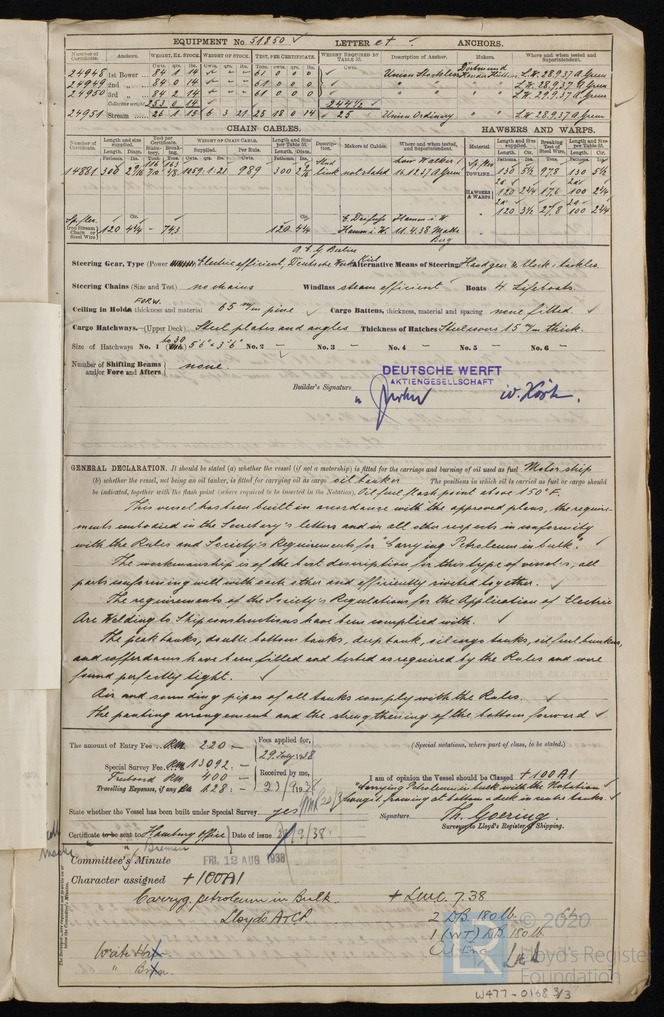 EQUIPMENT No. 51850 LETTER et ANCHORS.
Number of Certificate. Anchors. WEIGHT, EX. STOCK. WEIGHT OF STOCK. TEST, PER CERTIFICATE. WEIGHT REQUIRED BY TABLE 31. Description of Anchor. Makers. Where and when tested and Superintendent.
24948 1st Bower 84 1 14 61 0 0 0 Union Stockless
24949 2nd " 84 0 14 61 0 0 0 " " L.W. 28.9.37 A Green
24950 3rd " 84 2 14 61 0 0 0 " " L.W. 29.9.37 A Green
Collective weight 253 0 14 244½
24951 Stream 26 1 15 6 3 21 25 18 0 14 25 Union Ordinary " " L.W. 28.9.37 A Green
CHAIN CABLES. HAWSERS AND WARPS.
Number of Certificate. Length and size supplied. Test per Certificate. WEIGHT OF CHAIN CABLE. Length and Size per Table 31. Description. Makers of Cables. Where and when tested, and Superintendent. Material. Length and size supplied. Breaking Test of Steel Wire. Length and Size per Table 31.
14881 300 2 9/16 1059.1.21 989 300 link not stated 16.12.37 A Green TOWLINE. 130 5½ 97.8 130 5½
HAWSERS & WARPS 120 2¼ 17.6 100 2¼
120 3½ 27.8 100 2¼
Iron Stream Chain or Steel Wire 120 4¼ - 743 120 4¼ Hamm i. W. 11.4.38
Steering Gear, Type (Power Electric efficient, Deutsche Werke Kiel Alternative Means of Steering Handgear & block & tackles
Steering Chains (Size and Test) no chains Windlass steam efficient Boats 4 Lifeboats.
Ceiling in Holds thickness and material FORW. 65 m/m pine Cargo Battens, thickness, material and spacing none fitted.
Cargo Hatchways.—(Upper Deck) Steel plates and angles Thickness of Hatches Steelcovers 15 m/m thick.
Size of Hatchways No. 1 to 30 5'6" x 3'6" No. 2 No. 3 No. 4 No. 5 No. 6
Number of Shifting Beams and/or Fore and Afters none.
Builder's Signature
DEUTSCHE WERFT
AKTIENGESELLSCHAFT
GENERAL DECLARATION. It should be stated (a) whether the vessel (if not a motorship) is fitted for the carriage and burning of oil used as fuel Motor ship
(b) whether the vessel, not being an oil tanker, is fitted for carrying oil as cargo oil tanker The positions in which oil is carried as fuel or cargo should
be indicated, together with the flash point (where required to be inserted in the Notation) Oil fuel flash point above 150° F.
This vessel has been built in accordance with the approved plans, the require-
ments embodied in the Secretary's letters and in all other respects in conformity
with the Rules and Society's Requirements for "Carrying Petroleum in bulk".
The workmanship is of the best description for this type of vessels, all
parts conforming well with each other and efficiently riveted together.
The requirements of the Society's Regulations for the Application of Electric
Arc Welding to Ship constructions have been complied with.
The peak tanks, double bottom tanks, deep tank, oil cargo tanks, oil fuel bunkers,
and cofferdams have been filled and tested as required by the Rules and were
found perfectly tight.
Air and sounding pipes of all tanks comply with the Rules.
The panting arrangement and the strengthening of the bottom forward
The amount of Entry Fee .. RM. 220 :- Fees applied for, (Special notations, where part of class, to be stated.)
Special Survey Fee.. RM 13092.- 29 July 1938
Freeboard RM. 400 :- Received by me, I am of opinion the Vessel should be Classed +100A1
Travelling Expenses, if any RM 128 :- "Carrying Petroleum in bulk with the Notation
longit. framing at bottom & deck in centre tanks.
State whether the Vessel has been built under Special Survey yes Signature Th. Goering.
Surveyor to Lloyd's Register of Shipping.
Certificate to be sent to Hamburg office Date of issue 21/9/38
Bremen
Committee's Minute FRI. 12 AUG 1938
Character assigned +100A1
Carryg. petroleum in Bulk + LMC. 7.38
Lloyds A & CP. 2 DB 180 lb.
1 (WT) DB 180 lb
Oil Eng.
Write Ham
" Brem.
© 2020
LR Lloyd's Register
Foundation
W477-0168 3/3